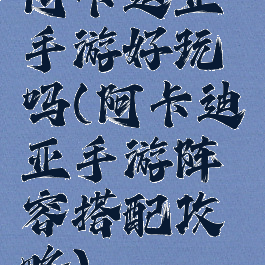 阿卡迪亚
手游好玩
吗(阿卡迪
亚手游阵
容搭配攻
略)